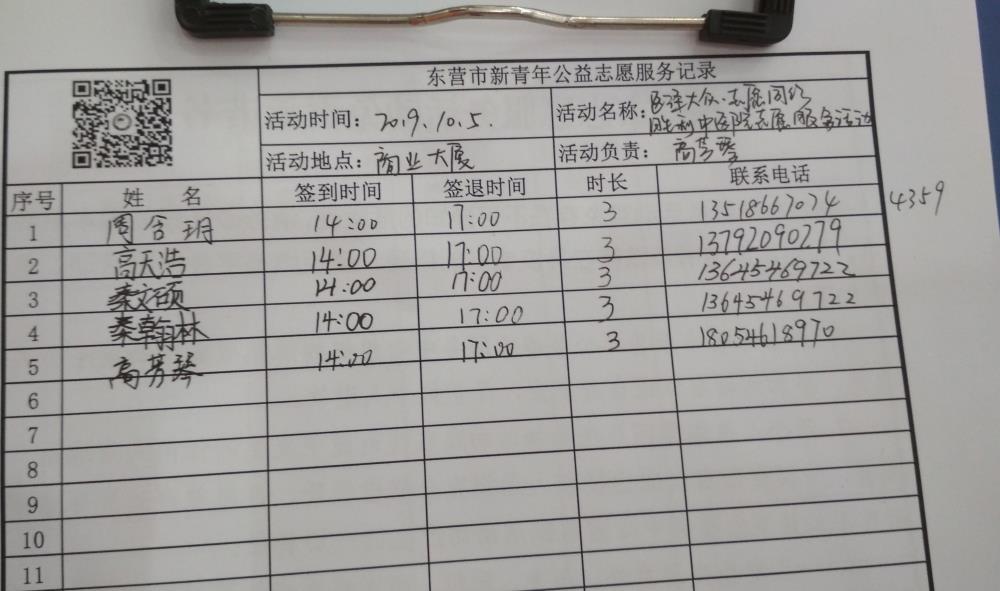 东营市新青年公益志愿服务记录
活动时间: 2019.10.5. 活动名称: 医泽大众·志愿同行
胜利中医院志愿服务活动
活动地点: 商业大厦 活动负责: 高芳琴
序号 姓 名 签到时间 签退时间 时长 联系电话
1 周含玥 14:00 17:00 3 13518667074 4359
2 高天浩 14:00 17:00 3 13792090279
3 秦文硕 14:00 17:00 3 13645469722
4 秦翰林 14:00 17:00 3 13645469722
5 高芳琴 14:00 17:00 3 18054618970
6
7
8
9
10
11